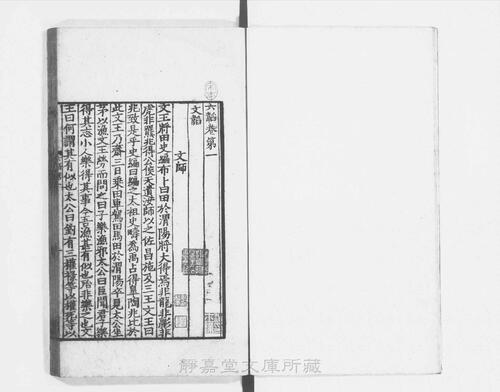 六韜卷第一
文韜
文師
文王將田史編布卜曰田於渭陽將大得焉非龍非彲非
虎非羆兆得公侯天遺汝師以之佐昌施及三王文王曰
兆致是乎史編曰編之太祖史疇爲禹占得皐陶兆比於
此文王乃齋三日乗田車駕田馬田於渭陽卒見太公坐
茅以漁文王勞而問之曰子樂漁邪太公曰臣聞君子樂
得其志小人樂得其事今吾漁甚有似也殆非樂之也文
王曰何謂其有似也太公曰釣有三權祿等以權死等以
靜嘉堂文庫所藏